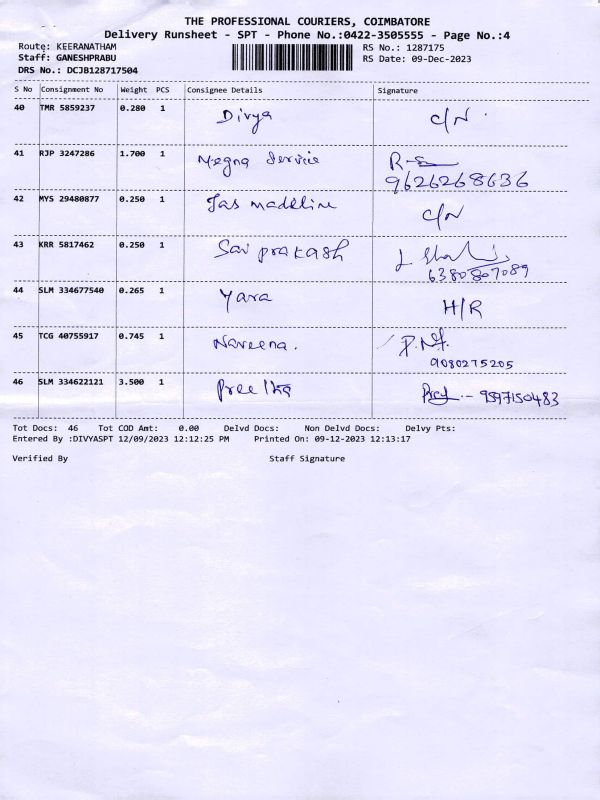 THE PROFESSIONAL COURIERS, COIMBATORE
Delivery Runsheet - SPT - Phone No.:0422-3505555 - Page No.:4
Route: KEERANATHAM RS No.: 1287175
Staff: GANESHPRABU RS Date: 09-Dec-2023
DRS No.: DCJB128717504
S No Consignment No Weight PCS Consignee Details Signature
40 TMR 5859237 0.280 1 Divya C/N
41 RJP 3247286 1.700 1 Megna Service
9626268636
42 MYS 29480877 0.250 1 Jas madeline C/N
43 KRR 5817462 0.250 1 Sai prakash
6380807089
44 SLM 334677540 0.265 1 Yara H/R
45 TCG 40755917 0.745 1 Naveena.
9080275205
46 SLM 334622121 3.500 1 - 9597150483
Tot Docs: 46 Tot COD Amt: 0.00 Delvd Docs: Non Delvd Docs: Delvy Pts:
Entered By :DIVYASPT 12/09/2023 12:12:25 PM Printed On: 09-12-2023 12:13:17
Verified By Staff Signature